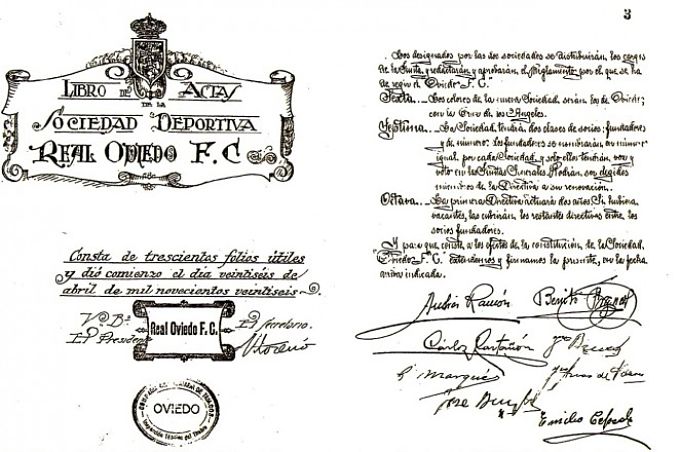 LIBRO DE ACTAS
DE LA
SOCIEDAD DEPORTIVA
REAL OVIEDO F. C.
Consta de trescientos folios útiles
y dió comienzo el día veintiséis de
abril de mil novecientos veintiseis
Vº Bº
El Presidente
Real Oviedo F. C.
El Secretario.
OVIEDO
3
Los designados por las dos sociedades se distribuirán, los cargos
de la Junta, y redactarán y aprobarán, el Reglamento por el que se ha
de regir el Oviedo F. C.
Sexta. Los colores de la nueva Sociedad serán los de Oviedo;
con la Cruz de los Angeles.
Septima. La Sociedad, tendrá dos clases de socios; fundadores
y de número. Los fundadores se nombrarán, en número
igual, por cada Sociedad, y solo ellos tendrán, voz y
voto en las Juntas Generales. Podrán, ser elegidos
miembros de la Directiva a su renovación.
Octava. La primera Directiva actuará dos años. Si hubiera
vacantes, las cubrirán los restantes directivos entre los
socios fundadores.
Y para que conste, a los efectos de la constitución de la Sociedad,
Oviedo F. C. extendemos y firmamos la presente, en la fecha
arriba indicada.
Ramón
Benito
José
Emilio